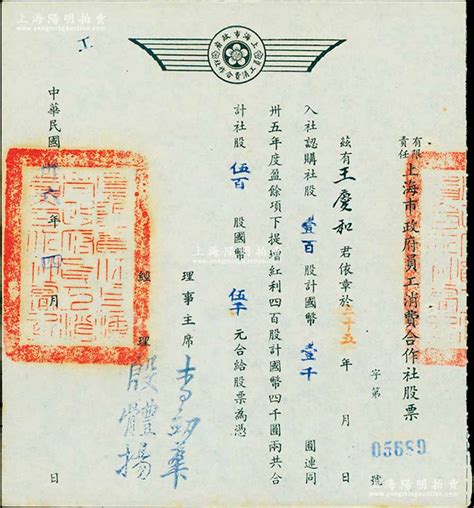 上海陽明拍賣
www.yangmingauction.com
上海市政府
員工消費合作社
有限責任上海市政府員工消費合作社股票
字第 05689 號
茲有王慶和君依章於三十五年 月 日
入社認購社股壹百股計國幣壹千圓連同
卅五年度盈餘項下提增紅利四百股計國幣四千圓兩共合
計社股伍百股國幣伍千元合給股票為憑
理事主席
經理 殷體揚
中華民國卅六年四月 日
上海陽明拍賣
www.yangmingauction.com